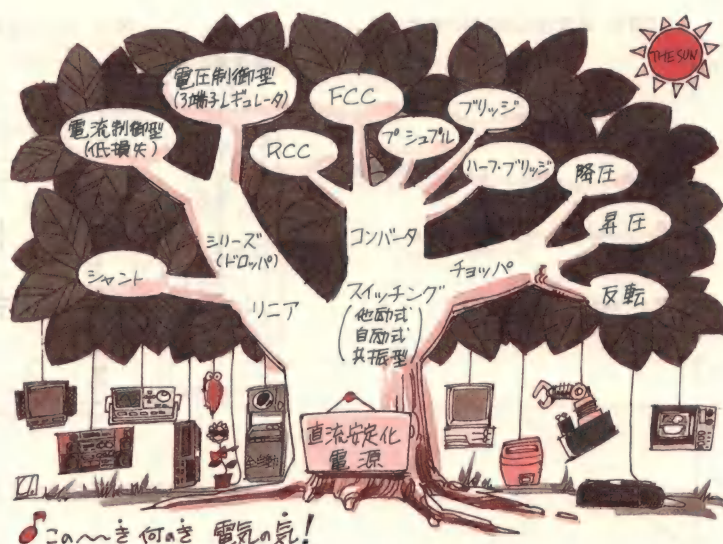 THE SUN
電圧制御型
(3端子レギュレータ)
電流制御型
(低損失)
FCC
RCC
プシュプル
ブリッジ
ハーフ・ブリッジ
降圧
昇圧
反転
シリーズ
(ドロッパ)
コンバータ
チョッパ
シャント
リニア
スイッチング
(他励式
自励式
共振型)
直流安定化
電源
この〜き 何のき 電気の気!